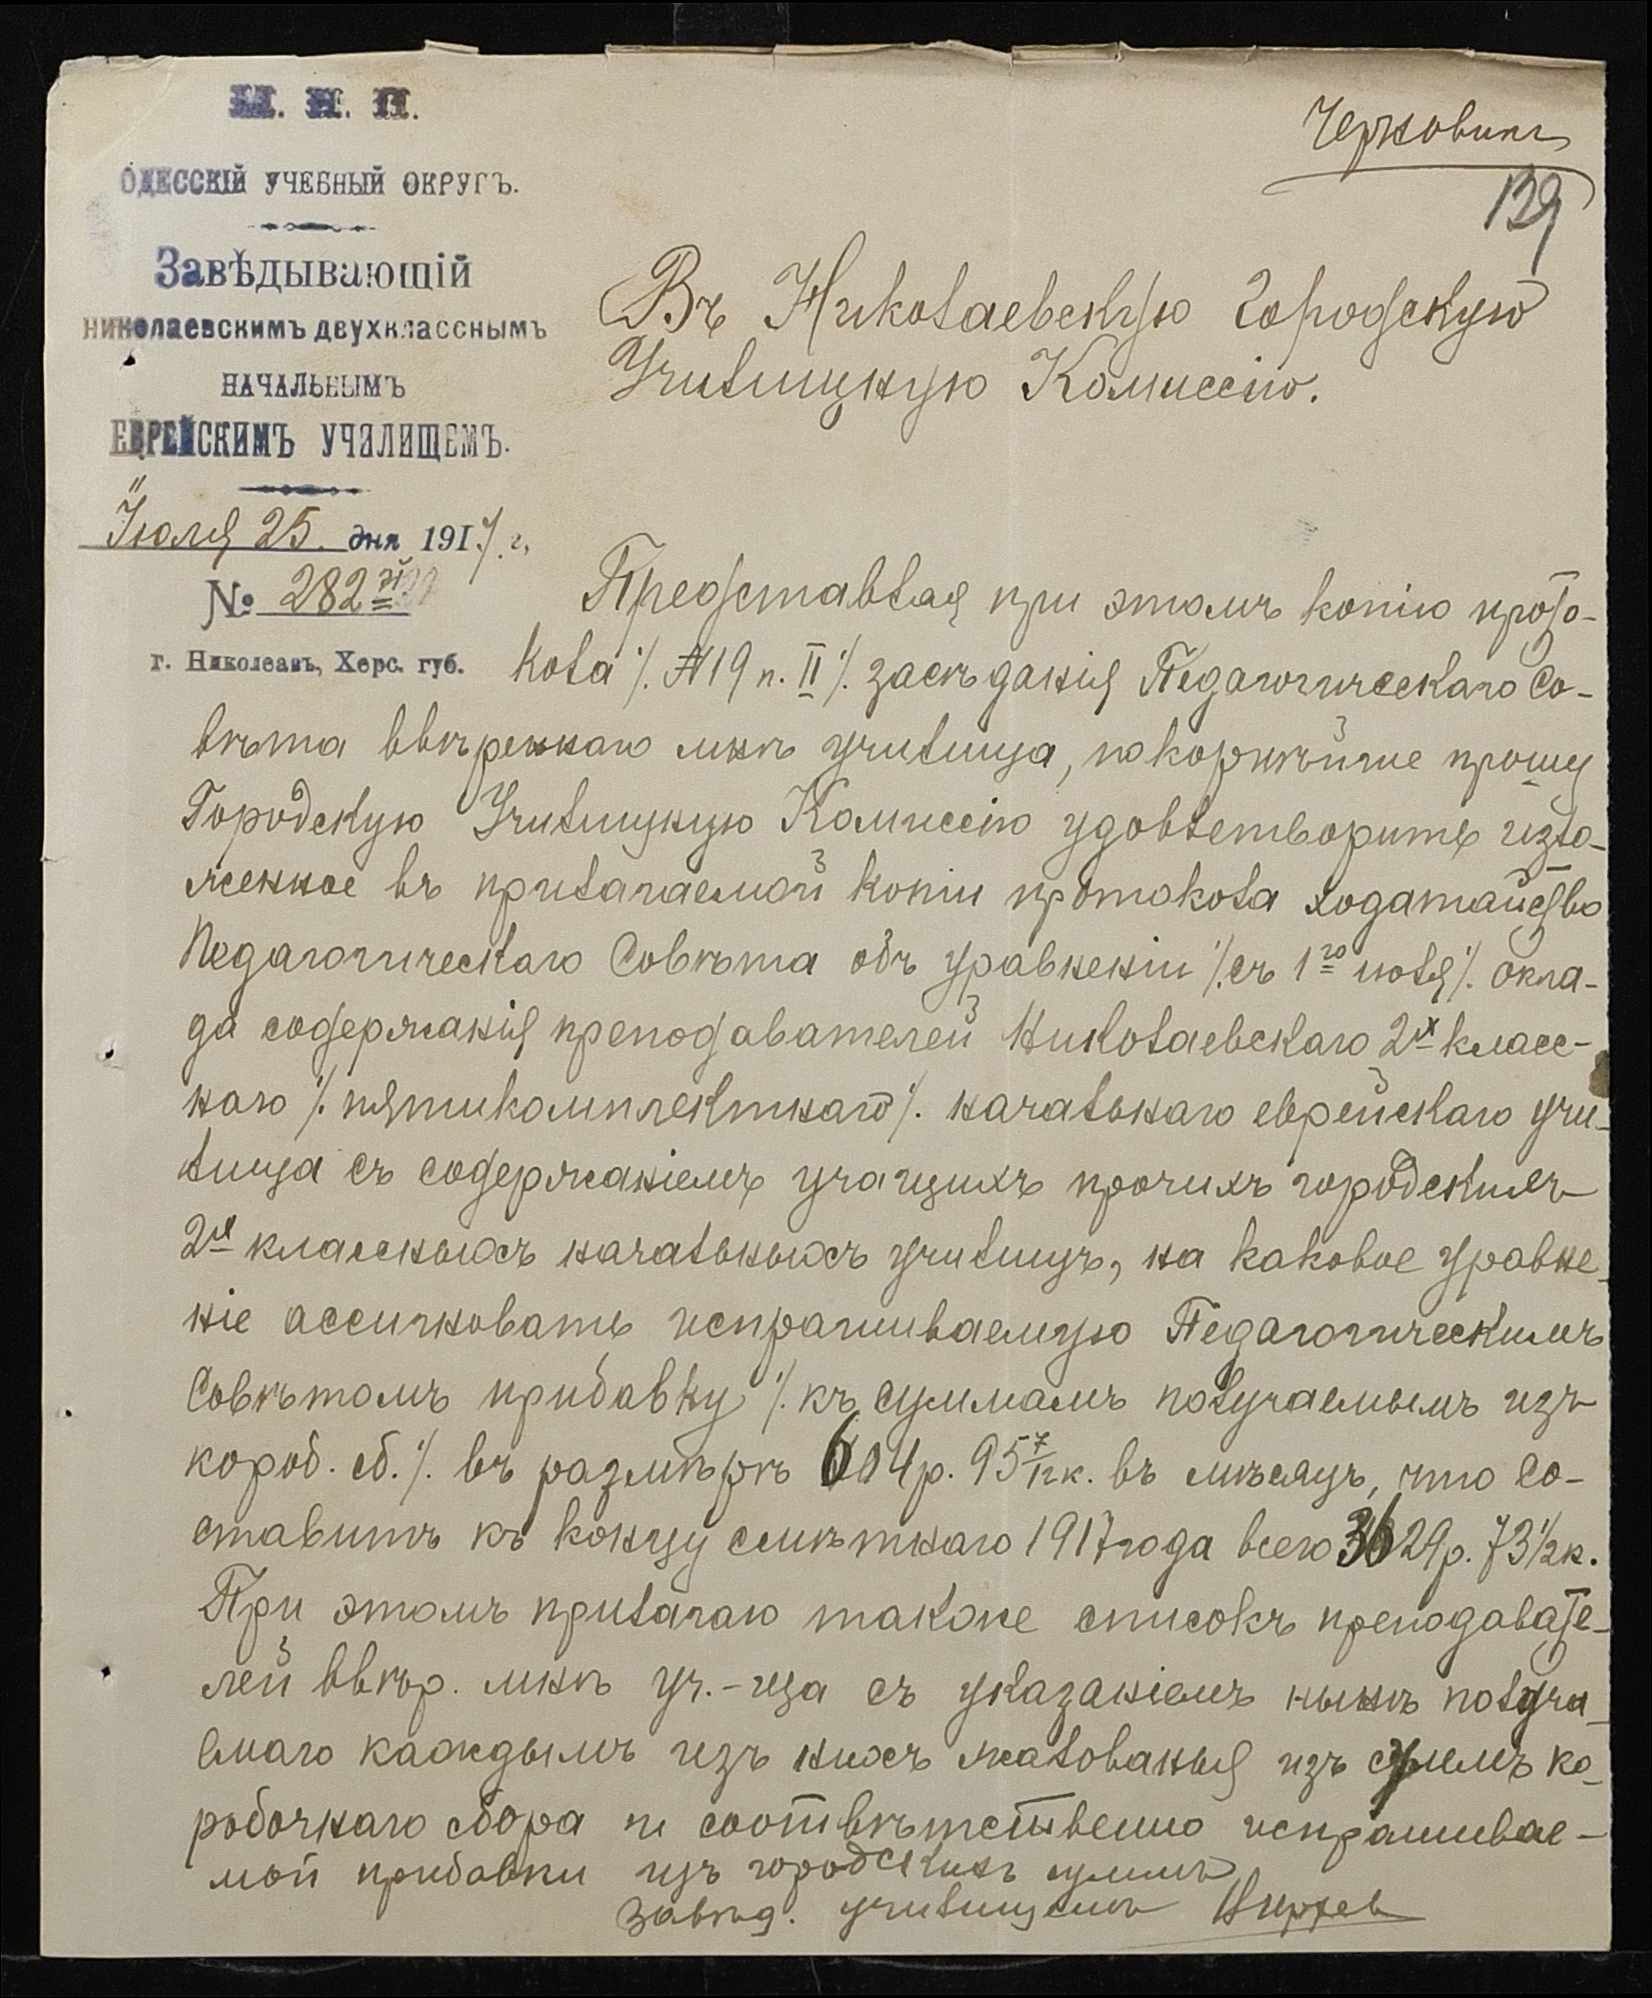 М. Н. П.
ОДЕССКІЙ УЧЕБНЫЙ ОКРУГЪ.
Завѣдывающій
николаевскимъ двухкласснымъ
НАЧАЛЬНЫМЪ
ЕВРЕЙСКИМЪ УЧИЛИЩЕМЪ.
Іюля 25 дня 1917 г.
№ 282
г. Николаевъ, Херс. губ.
Черновикъ
139
Въ Николаевскую Городскую
Училищную Комиссію.
Представляя при этомъ копію прото-
кола /. №19 п. II /. засѣданія Педагогическаго Со-
вѣта ввѣреннаго мнѣ училища, покорнѣйше прошу
Городскую Училищную Комиссію удовлетворить изло-
женное въ прилагаемой копіи протокола ходатайство
Педагогическаго Совѣта объ уравненіи /. съ 1го іюля /. окла-
да содержанія преподавателей Николаевскаго 2х класс-
наго /. пятикомплектнаго /. начальнаго еврейскаго учи-
лища съ содержаніемъ учащихъ прочихъ городскихъ
2х классныхъ начальныхъ училищъ, на каковое уравне-
ніе ассигновать испрашиваемую Педагогическимъ
Совѣтомъ прибавку /. къ суммамъ получаемымъ изъ
короб. сб. /. въ размѣрѣ 604р. 95 7/12 к. въ мѣсяцъ, что со-
ставитъ къ концу смѣтнаго 1917 года всего 3629р. 73 1/2 к.
При этомъ прилагаю также списокъ преподавате-
лей ввѣр. мнѣ уч.-ща съ указаніемъ нынѣ получа-
емаго каждымъ изъ нихъ жалованья изъ суммъ ко-
робочнаго сбора и соотвѣтственно испрашивае-
мой прибавки изъ городскихъ суммъ
Завѣд. училищемъ